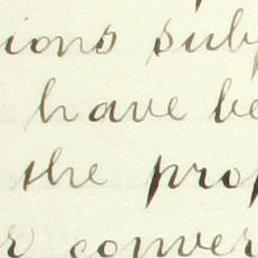 ions sub
have be
the prop
r conver